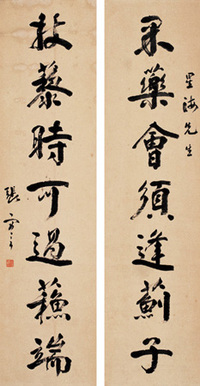 星海先生
采藥會須逢薊子
杖藜時可過蘓端
張謇